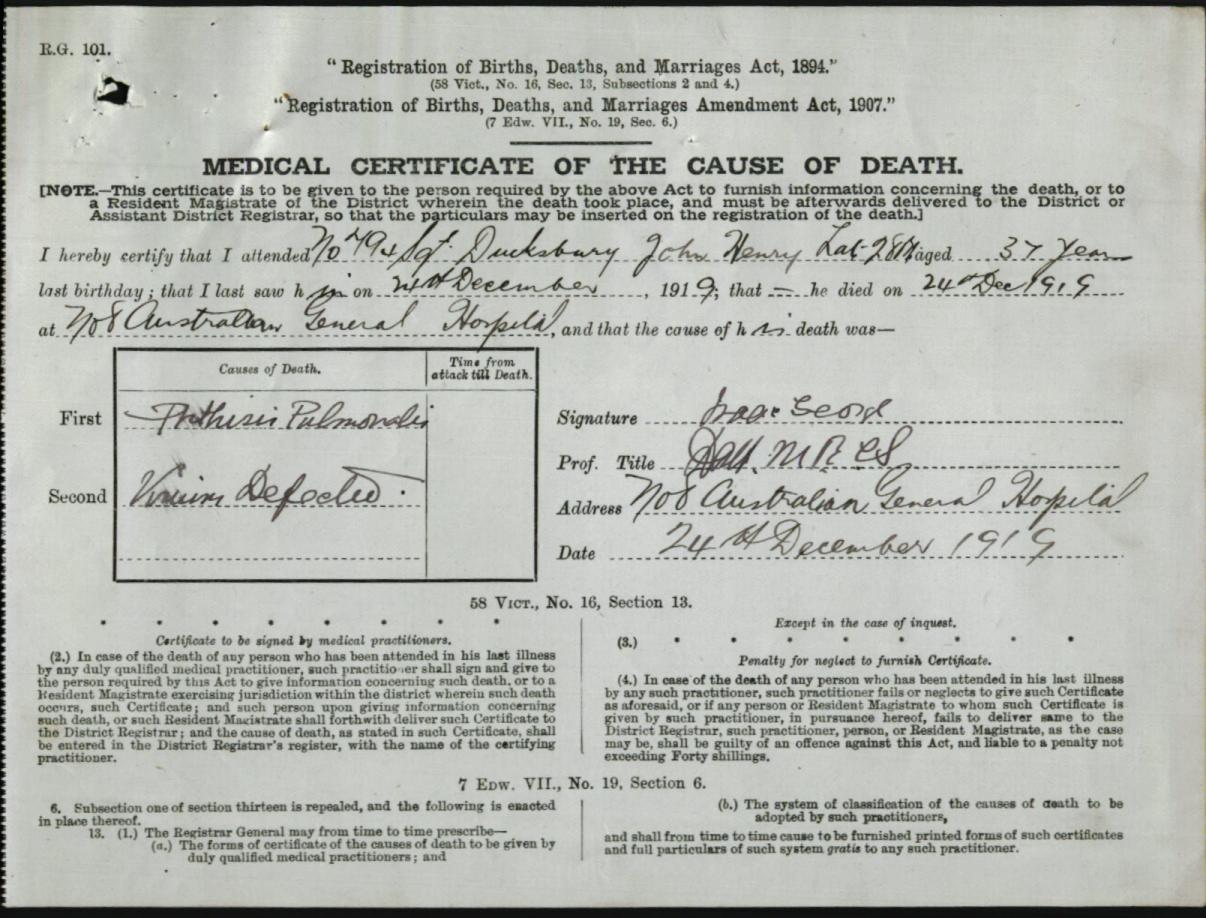 R.G. 101.
“Registration of Births, Deaths, and Marriages Act, 1894.”
(58 Vict., No. 16, Sec. 13, Subsections 2 and 4.)
“Registration of Births, Deaths, and Marriages Amendment Act, 1907.”
(7 Edw. VII., No. 19, Sec. 6.)
MEDICAL CERTIFICATE OF THE CAUSE OF DEATH.
[NOTE.—This certificate is to be given to the person required by the above Act to furnish information concerning the death, or to
a Resident Magistrate of the District wherein the death took place, and must be afterwards delivered to the District or
Assistant District Registrar, so that the particulars may be inserted on the registration of the death.]
I hereby certify that I attended No 794 Sgt. Ducksbury John Henry Late 28th aged 37 Years
last birthday; that I last saw him on 24th December, 1919; that — he died on 24th Dec 1919
at No 8 Australian General Hospital, and that the cause of his death was—
Causes of Death.
Time from
attack till Death.
First Phthisis Pulmonalis
Second Defected.
Signature Isaac
Prof. Title M.R.C.S
Address No 8 Australian General Hospital
Date 24th December 1919
58 VICT., No. 16, Section 13.
* * * * * * * *
Certificate to be signed by medical practitioners.
(2.) In case of the death of any person who has been attended in his last illness
by any duly qualified medical practitioner, such practitioner shall sign and give to
the person required by this Act to give information concerning such death, or to a
Resident Magistrate exercising jurisdiction within the district wherein such death
occurs, such Certificate; and such person upon giving information concerning
such death, or such Resident Magistrate shall forthwith deliver such Certificate to
the District Registrar; and the cause of death, as stated in such Certificate, shall
be entered in the District Registrar's register, with the name of the certifying
practitioner.
Except in the case of inquest.
(3.) * * * * * * * *
Penalty for neglect to furnish Certificate.
(4.) In case of the death of any person who has been attended in his last illness
by any such practitioner, such practitioner fails or neglects to give such Certificate
as aforesaid, or if any person or Resident Magistrate to whom such Certificate is
given by such practitioner, in pursuance hereof, fails to deliver same to the
District Registrar, such practitioner, person, or Resident Magistrate, as the case
may be, shall be guilty of an offence against this Act, and liable to a penalty not
exceeding Forty shillings.
7 EDW. VII., No. 19, Section 6.
6. Subsection one of section thirteen is repealed, and the following is enacted
in place thereof.
13. (1.) The Registrar General may from time to time prescribe—
(a.) The forms of certificate of the causes of death to be given by
duly qualified medical practitioners; and
(b.) The system of classification of the causes of death to be
adopted by such practitioners,
and shall from time to time cause to be furnished printed forms of such certificates
and full particulars of such system gratis to any such practitioner.